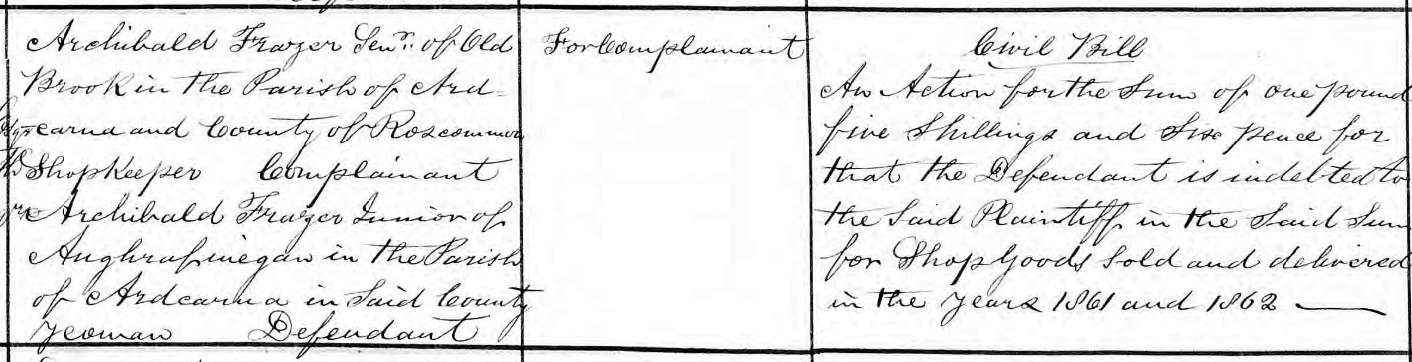 Archibald Frazer Senr. of Old
Brook in the Parish of Ard=
carna and County of Roscommon
Shopkeeper Complainant
Archibald Frazer Junior of
Aughrafinegan in the Parish
of Ardcarna in Said County
Yeoman Defendant
For Complainant
Civil Bill
An Action for the Sum of one pound
five Shillings and Six pence for
that the Defendant is indebted to
the Said Plaintiff in the Said Sum
for Shop Goods Sold and delivered
in the years 1861 and 1862